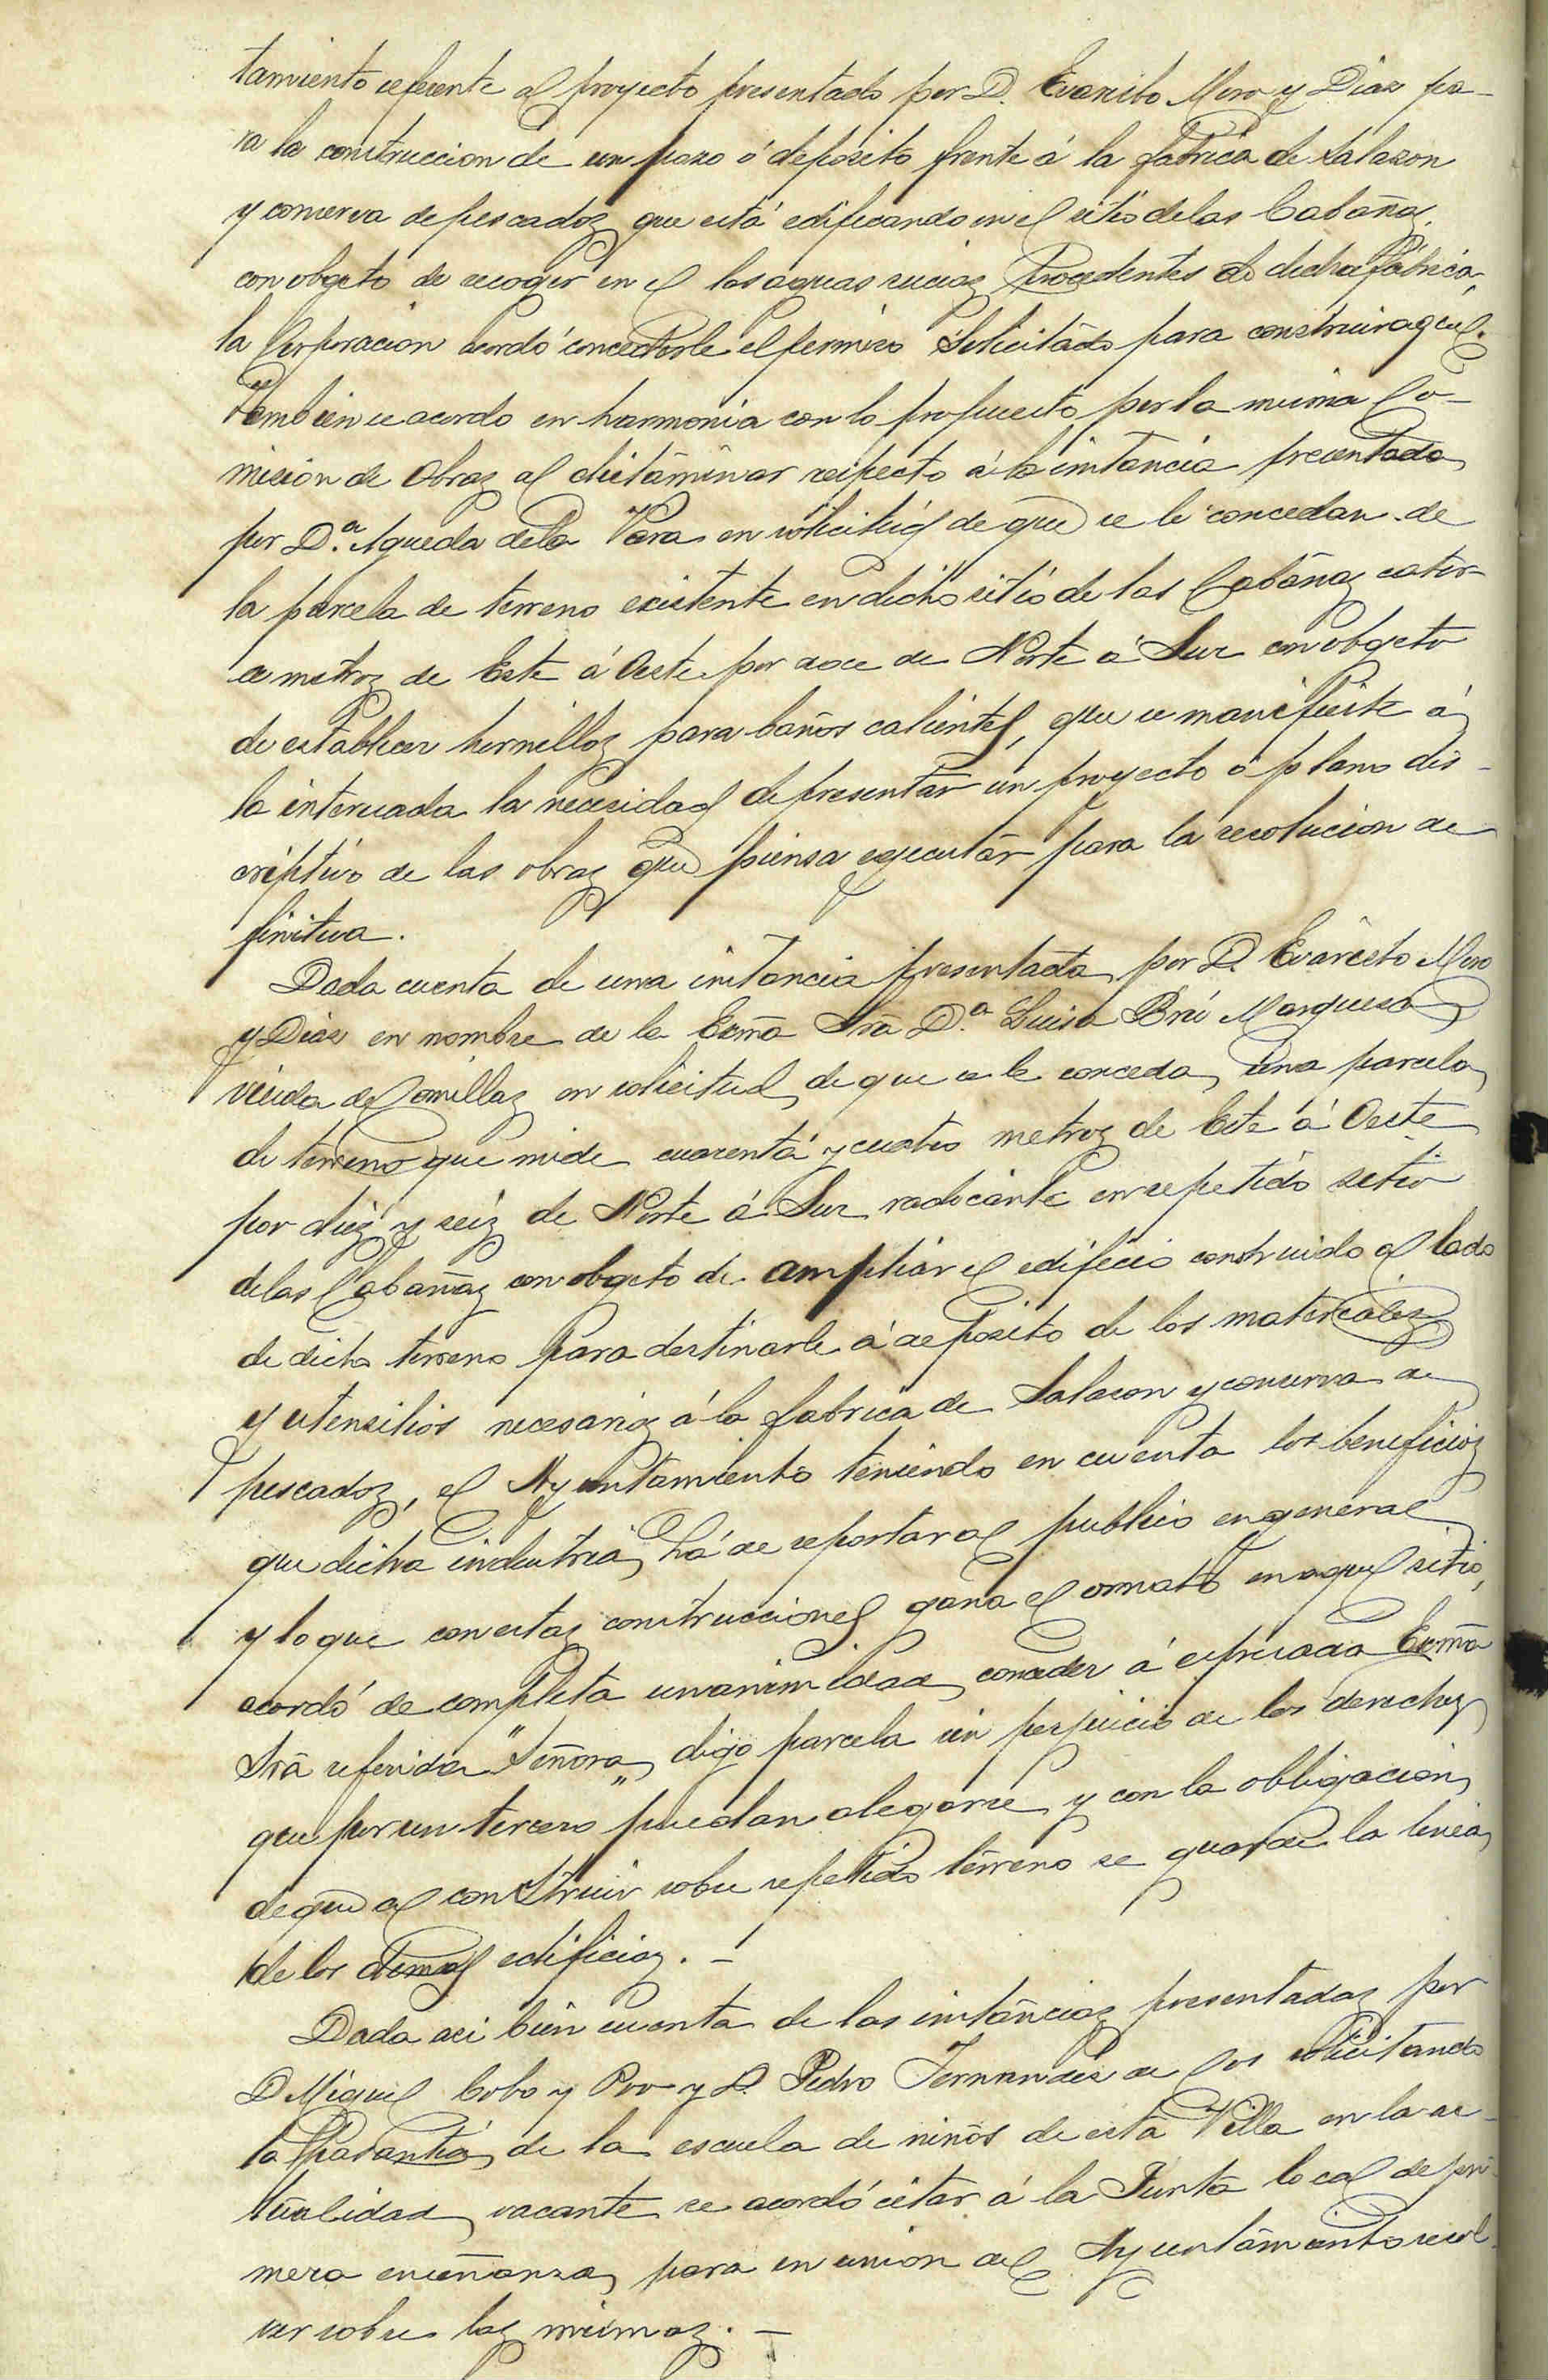 tamiento referente al proyecto presentado por D. Evaristo Moro y Diaz pa-
ra la construccion de un pozo ó deposito frente á la fabrica de salazon
y conserva de pescados que está edificando en el sitio de las Cabañas,
con obgeto de recoger en el las aguas sucias procedentes de dicha fábrica,
la Corporacion acordó concederle el permiso solicitado para construir aquel.
Tambien se acordo en harmonia con lo propuesto por la misma Co-
mision de Obras al dictaminar respecto á la instancia presentada
por D.ª Agueda de la Vara en solicitud de que se le concedan de
la parcela de terreno existente en dicho sitio de las Cabañas cator-
ce metros de Este á Oeste por doce de Norte á Sur con obgeto
de establecer hornillos para baños calientes, que se manifieste á
la interesada la necesidad de presentar un proyecto ó plano des-
criptivo de las obras que piensa egecutar para la resolucion de-
finitiva.
Dada cuenta de una instancia presentada por D. Evaristo Moro
y Diaz en nombre de la Exmã Srã D.ª Luisa Brú Marquesa
viuda de Comillas en solicitud de que se le conceda una parcela
de terreno que mide cuarenta y cuatro metros de Este á Oeste
por diez y seis de Norte á Sur radicante en repetido sitio
de las Cabañas con obgeto de ampliar el edificio construido al lado
de dicho terreno para destinarle á deposito de los materiales
y utensilios necesarios á la fabrica de Salazon y conserva de
pescados, el Ayuntamiento teniendo en cuenta los beneficios
que dicha industria há de reportar al publico en general
y lo que con estas construcciones gana el ornato en aquel sitio,
acordó de completa unanimidad conceder á espresada Exmã
Srã referida "Señora" digo parcela sin perjuicio de los derechos
que por un tercero puedan alegarse y con la obligacion
de que al construir sobre repetido terreno se guarde la linea
de los demas edificios. -
Dada asi bien cuenta de las instancias presentadas por
D Miguel Cobo y Poo y D. Pedro Fernandez de Cos solicitando
la Pasantia de la escuela de niños de esta Villa en la ac-
tualidad vacante se acordó citar á la Junta local de pri-
mera enseñanza para en union del Ayuntamiento resol-
ver sobre las mismas. -